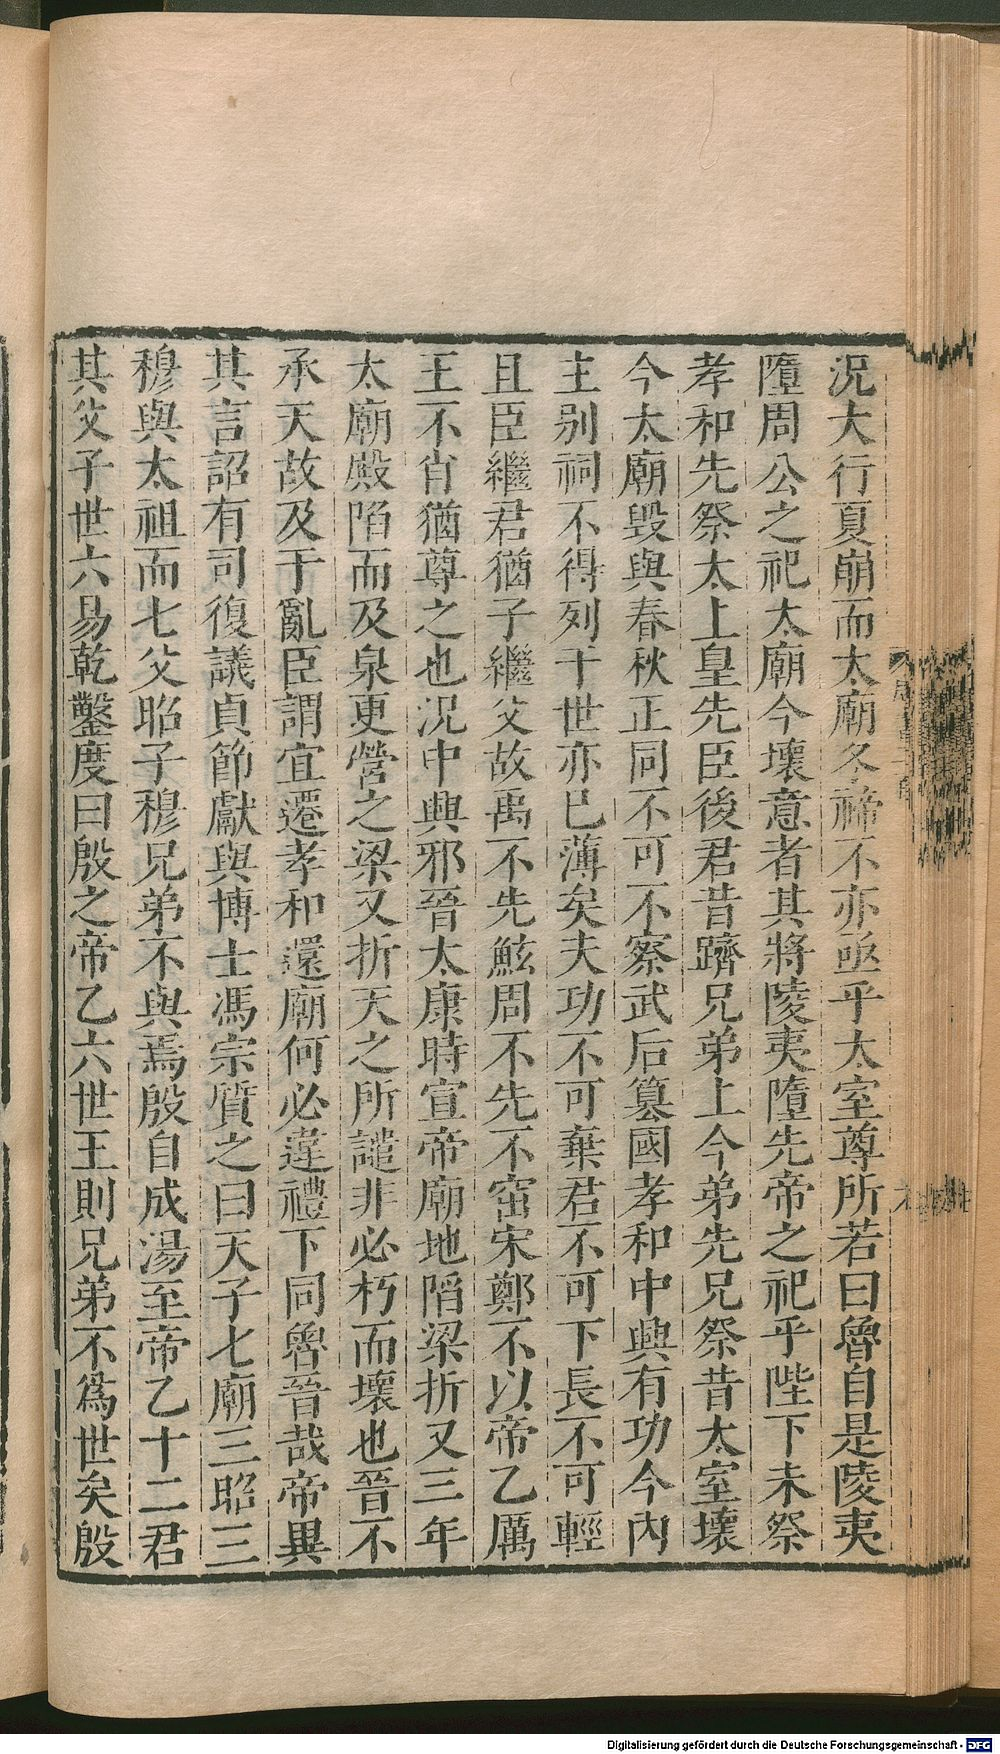 況大行夏崩而太廟冬禘不亦亟乎太室尊所若曰魯自是陵夷
隳周公之祀太廟今壞意者其將陵夷隳先帝之祀乎陛下未祭
孝和先祭太上皇先臣後君昔躋兄弟上今弟先兄祭昔太室壞
今太廟毀與春秋正同不可不察武后篡國孝和中興有功今內
主別祠不得列于世亦已薄矣夫功不可棄君不可下長不可輕
且臣繼君猶子繼父故禹不先鮌周不先不窋宋鄭不以帝乙厲
王不肖猶尊之也況中興邪晉太康時宣帝廟地陷梁折又三年
太廟殿陷而及泉更營之梁又折天之所譴非必朽而壞也晉不
承天故及于亂臣謂宜遷孝和還廟何必違禮下同魯晉哉帝異
其言詔有司復議貞節獻與博士馮宗質之曰天子七廟三昭三
穆與太祖而七父昭子穆兄弟不與焉殷自成湯至帝乙十二君
其父子世六易乾鑿度曰殷之帝乙六世王則兄弟不爲世矣殷
Digitalisierung gefördert durch die Deutsche Forschungsgemeinschaft - DFG